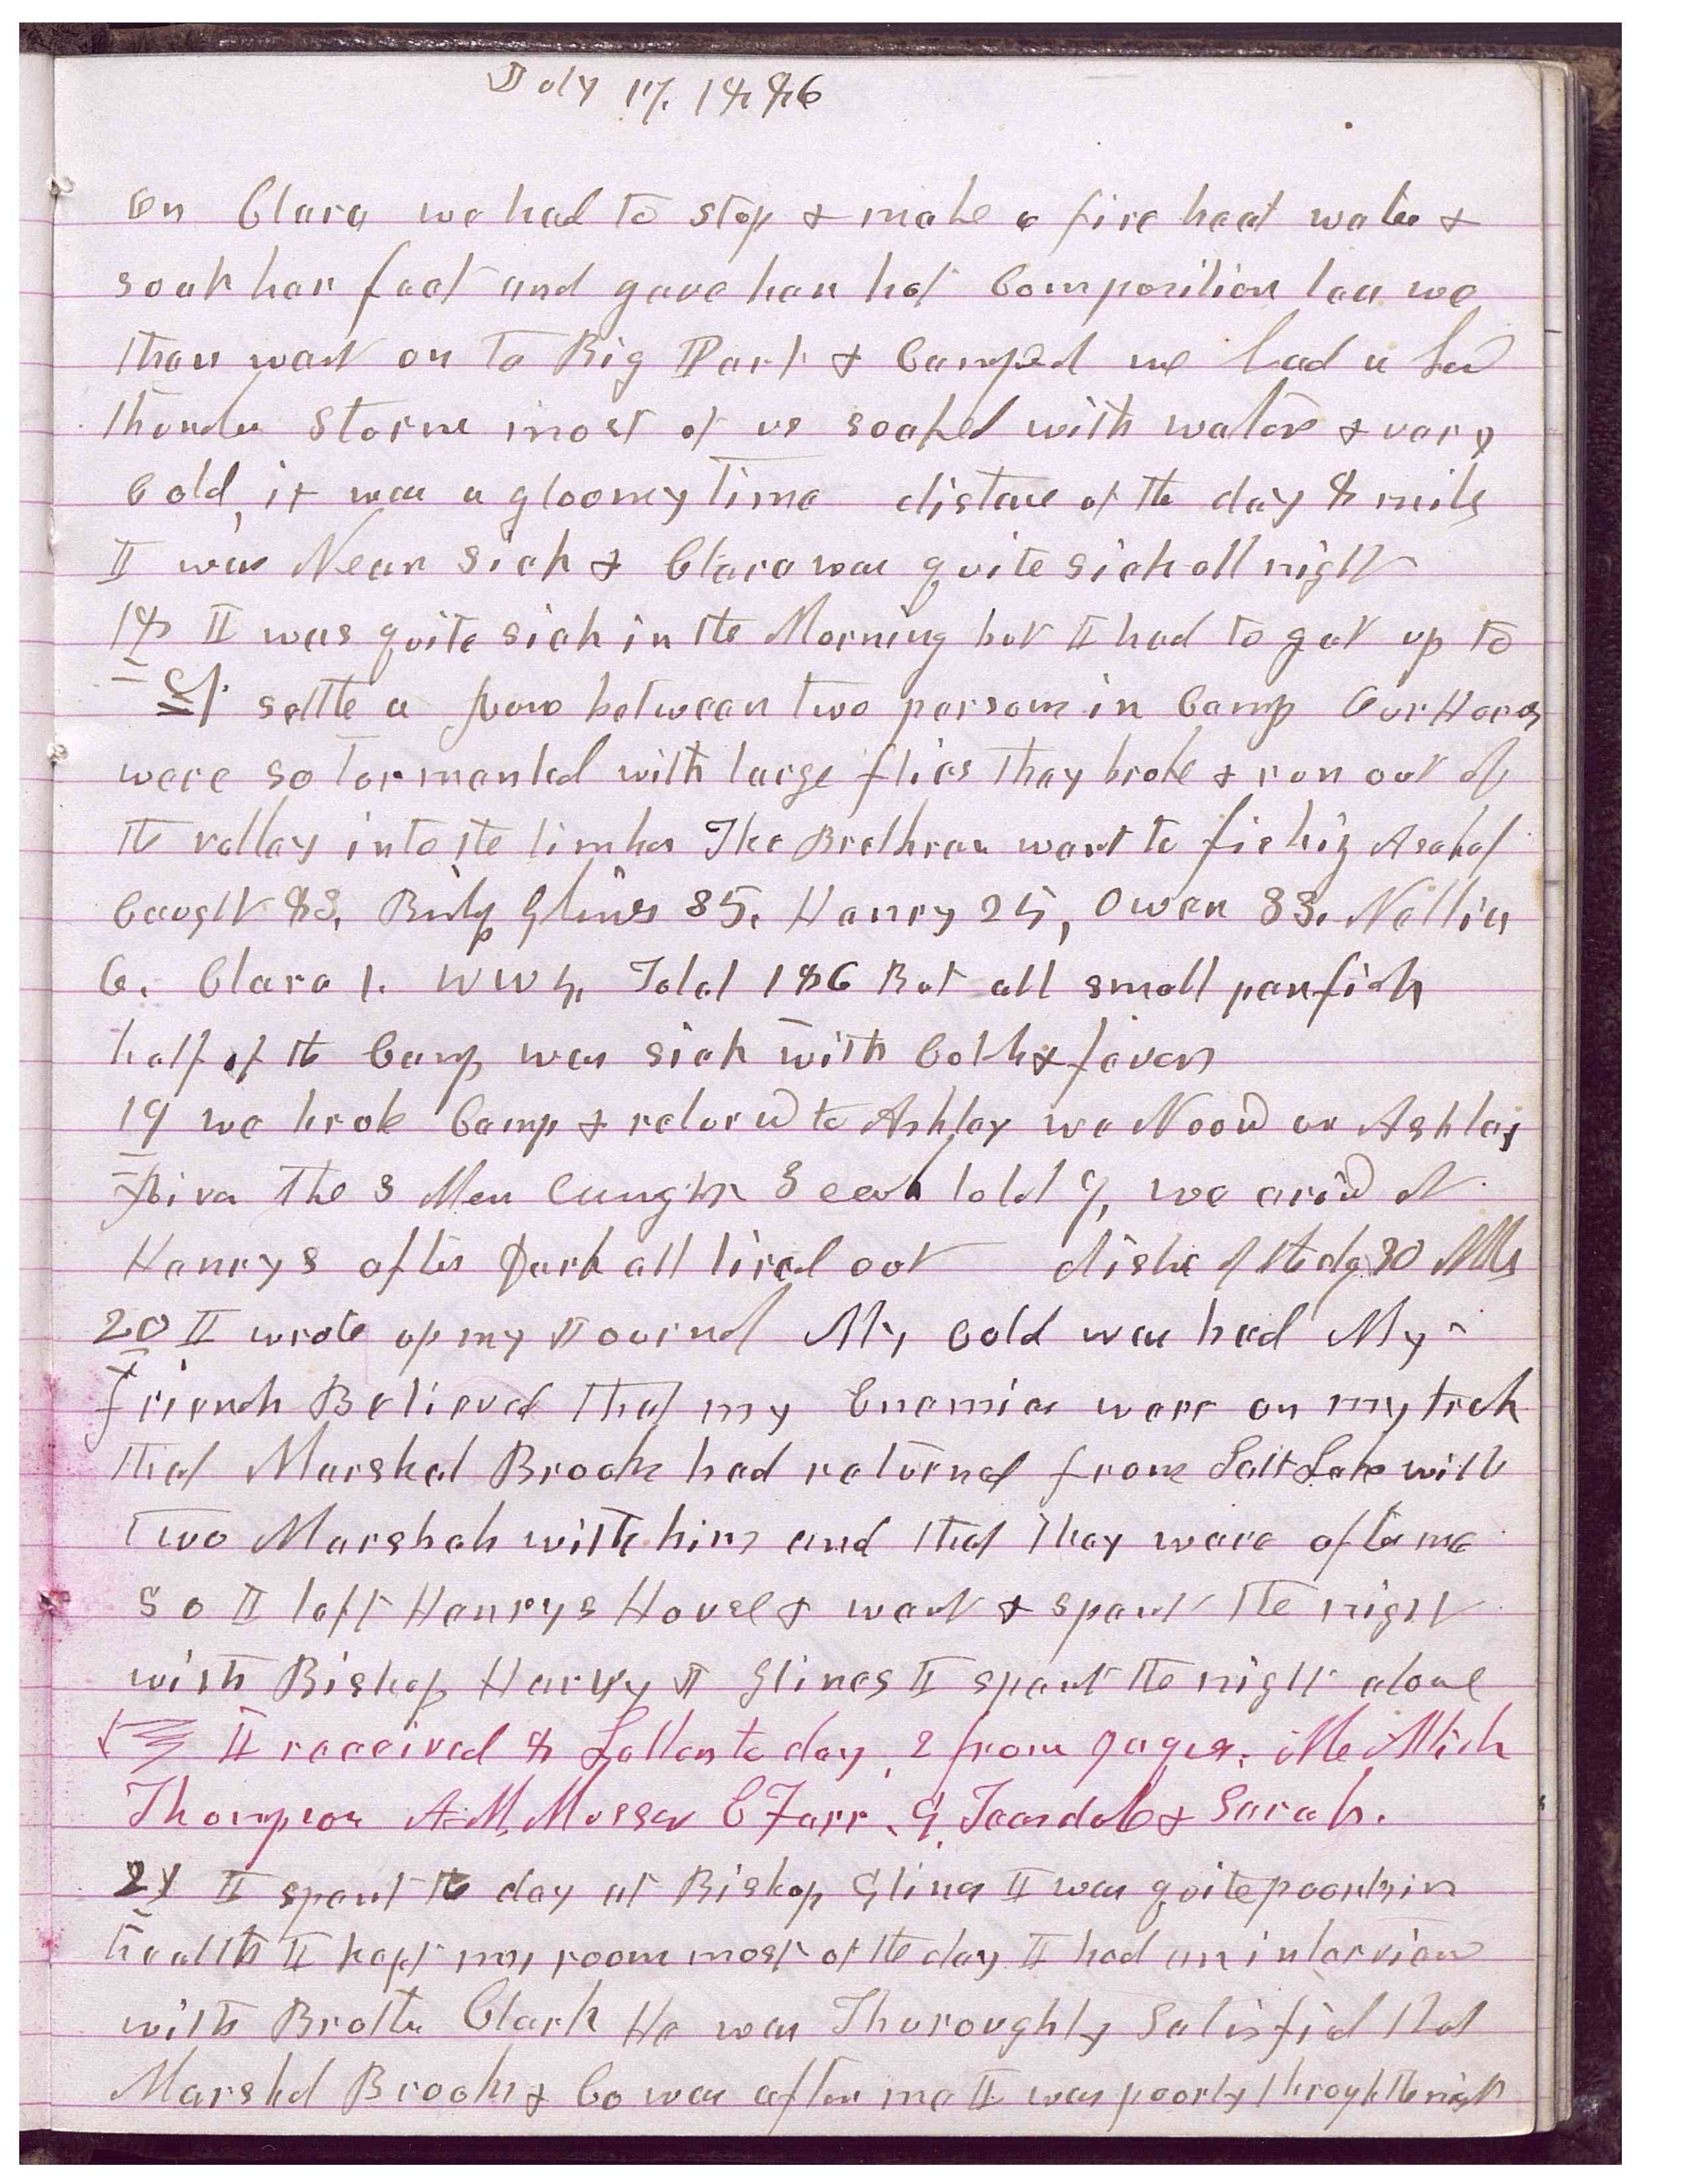 July 17, 1886
on Clara we had to stop & make a fire heat water &
soak her feet and gave her hot Composition tea we
then went on to Big Park & Camped we had a had
thunder Storm most of us soaked with water & very
Cold, it was a gloomey time distance of the day 8 mils
I was Near Sick & Clara was quite sick all night
18 I was quite sick in the Morning but I had to get up to
settle a Row between two persons in Camp Our Horses
were so tormented with large flies they broke & run out of
the valley into the timber The Brethren went to fishing Asahel
Caught 83, Bishp Glines 35. Henry 25, Owen 33. Nellie
6. Clara 1. WW 4, Total 186 But all small panfish
half of the Camp was sick with Colds & fever
19 we broke Camp & returnd to Ashley we Noond on Ashley
River The 3 Men Caught 3 each total 9, we arivd at
Henrys after Dark all tired out distance of the day 30 Mls
20 I wrote up my Journal My Cold was bad My
friends Believed that my Enemies were on my track
that Marshal Brooks had returned from Salt Lake with
two Marshals with him and that they were after me
so I left Henrys House & went & spent the night
with Bishop Harvey J Glines I spent the night alone
I received 8 Letters to day 2 from Jaques, Mc Mich
Thompson A M, Musser C Farr, G. Teasdale & Sarah.
21 I spent the day at Bishop Glines I was quite poorly in
health I kept my room most of the day I had an interview
with Brother Clark He was Thoroughly Satisfied that
Marshal Brooks & Co was after me I was poorly through the night